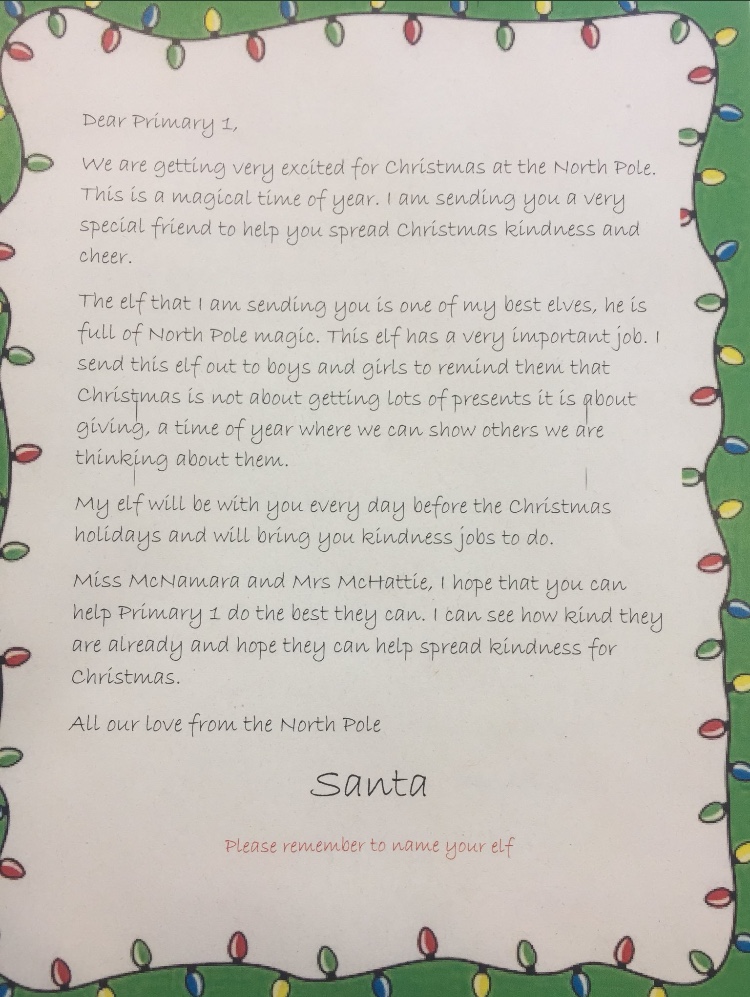 Dear Primary 1,
We are getting very excited for Christmas at the North Pole.
This is a magical time of year. I am sending you a very
special friend to help you spread Christmas kindness and
cheer.
The elf that I am sending you is one of my best elves, he is
full of North Pole magic. This elf has a very important job. I
send this elf out to boys and girls to remind them that
Christmas is not about getting lots of presents it is about
giving, a time of year where we can show others we are
thinking about them.
My elf will be with you every day before the Christmas
holidays and will bring you kindness jobs to do.
Miss McNamara and Mrs McHattie, I hope that you can
help Primary 1 do the best they can. I can see how kind they
are already and hope they can help spread kindness for
Christmas.
All our love from the North Pole
Santa
Please remember to name your elf